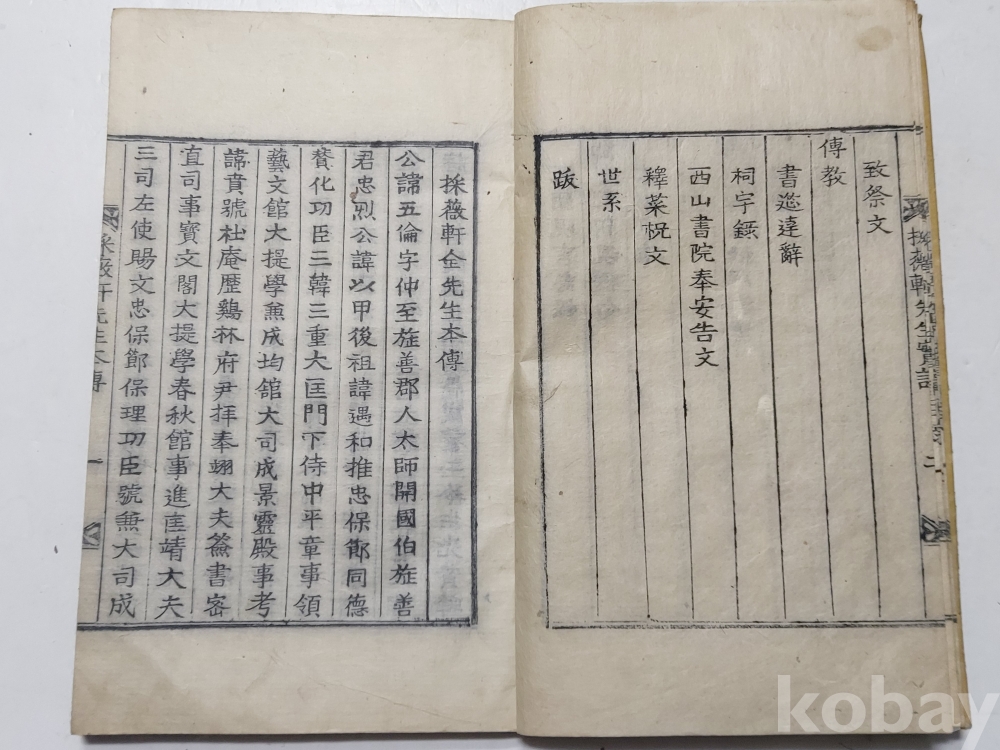 致祭文
傳教
書筵達辭
祠宇錄
西山書院奉安告文
釋菜祝文
世系
跋
採薇軒全先生本傳
公諱五倫字仲至㫌善郡人太師開國伯㫌善
君忠烈公諱以甲後祖諱遇和推忠保節同德
賛化功臣三韓三重大匡門下侍中平章事領
藝文舘大提學兼成均舘大司成景靈殿事考
諱賁號杜庵歷鷄林府尹拜奉翊大夫簽書密
直司事寶文閣大提學春秋館事進匡靖大夫
三司左使賜文忠保節保理功臣號兼大司成
採薇軒先生本傳
一
kobay